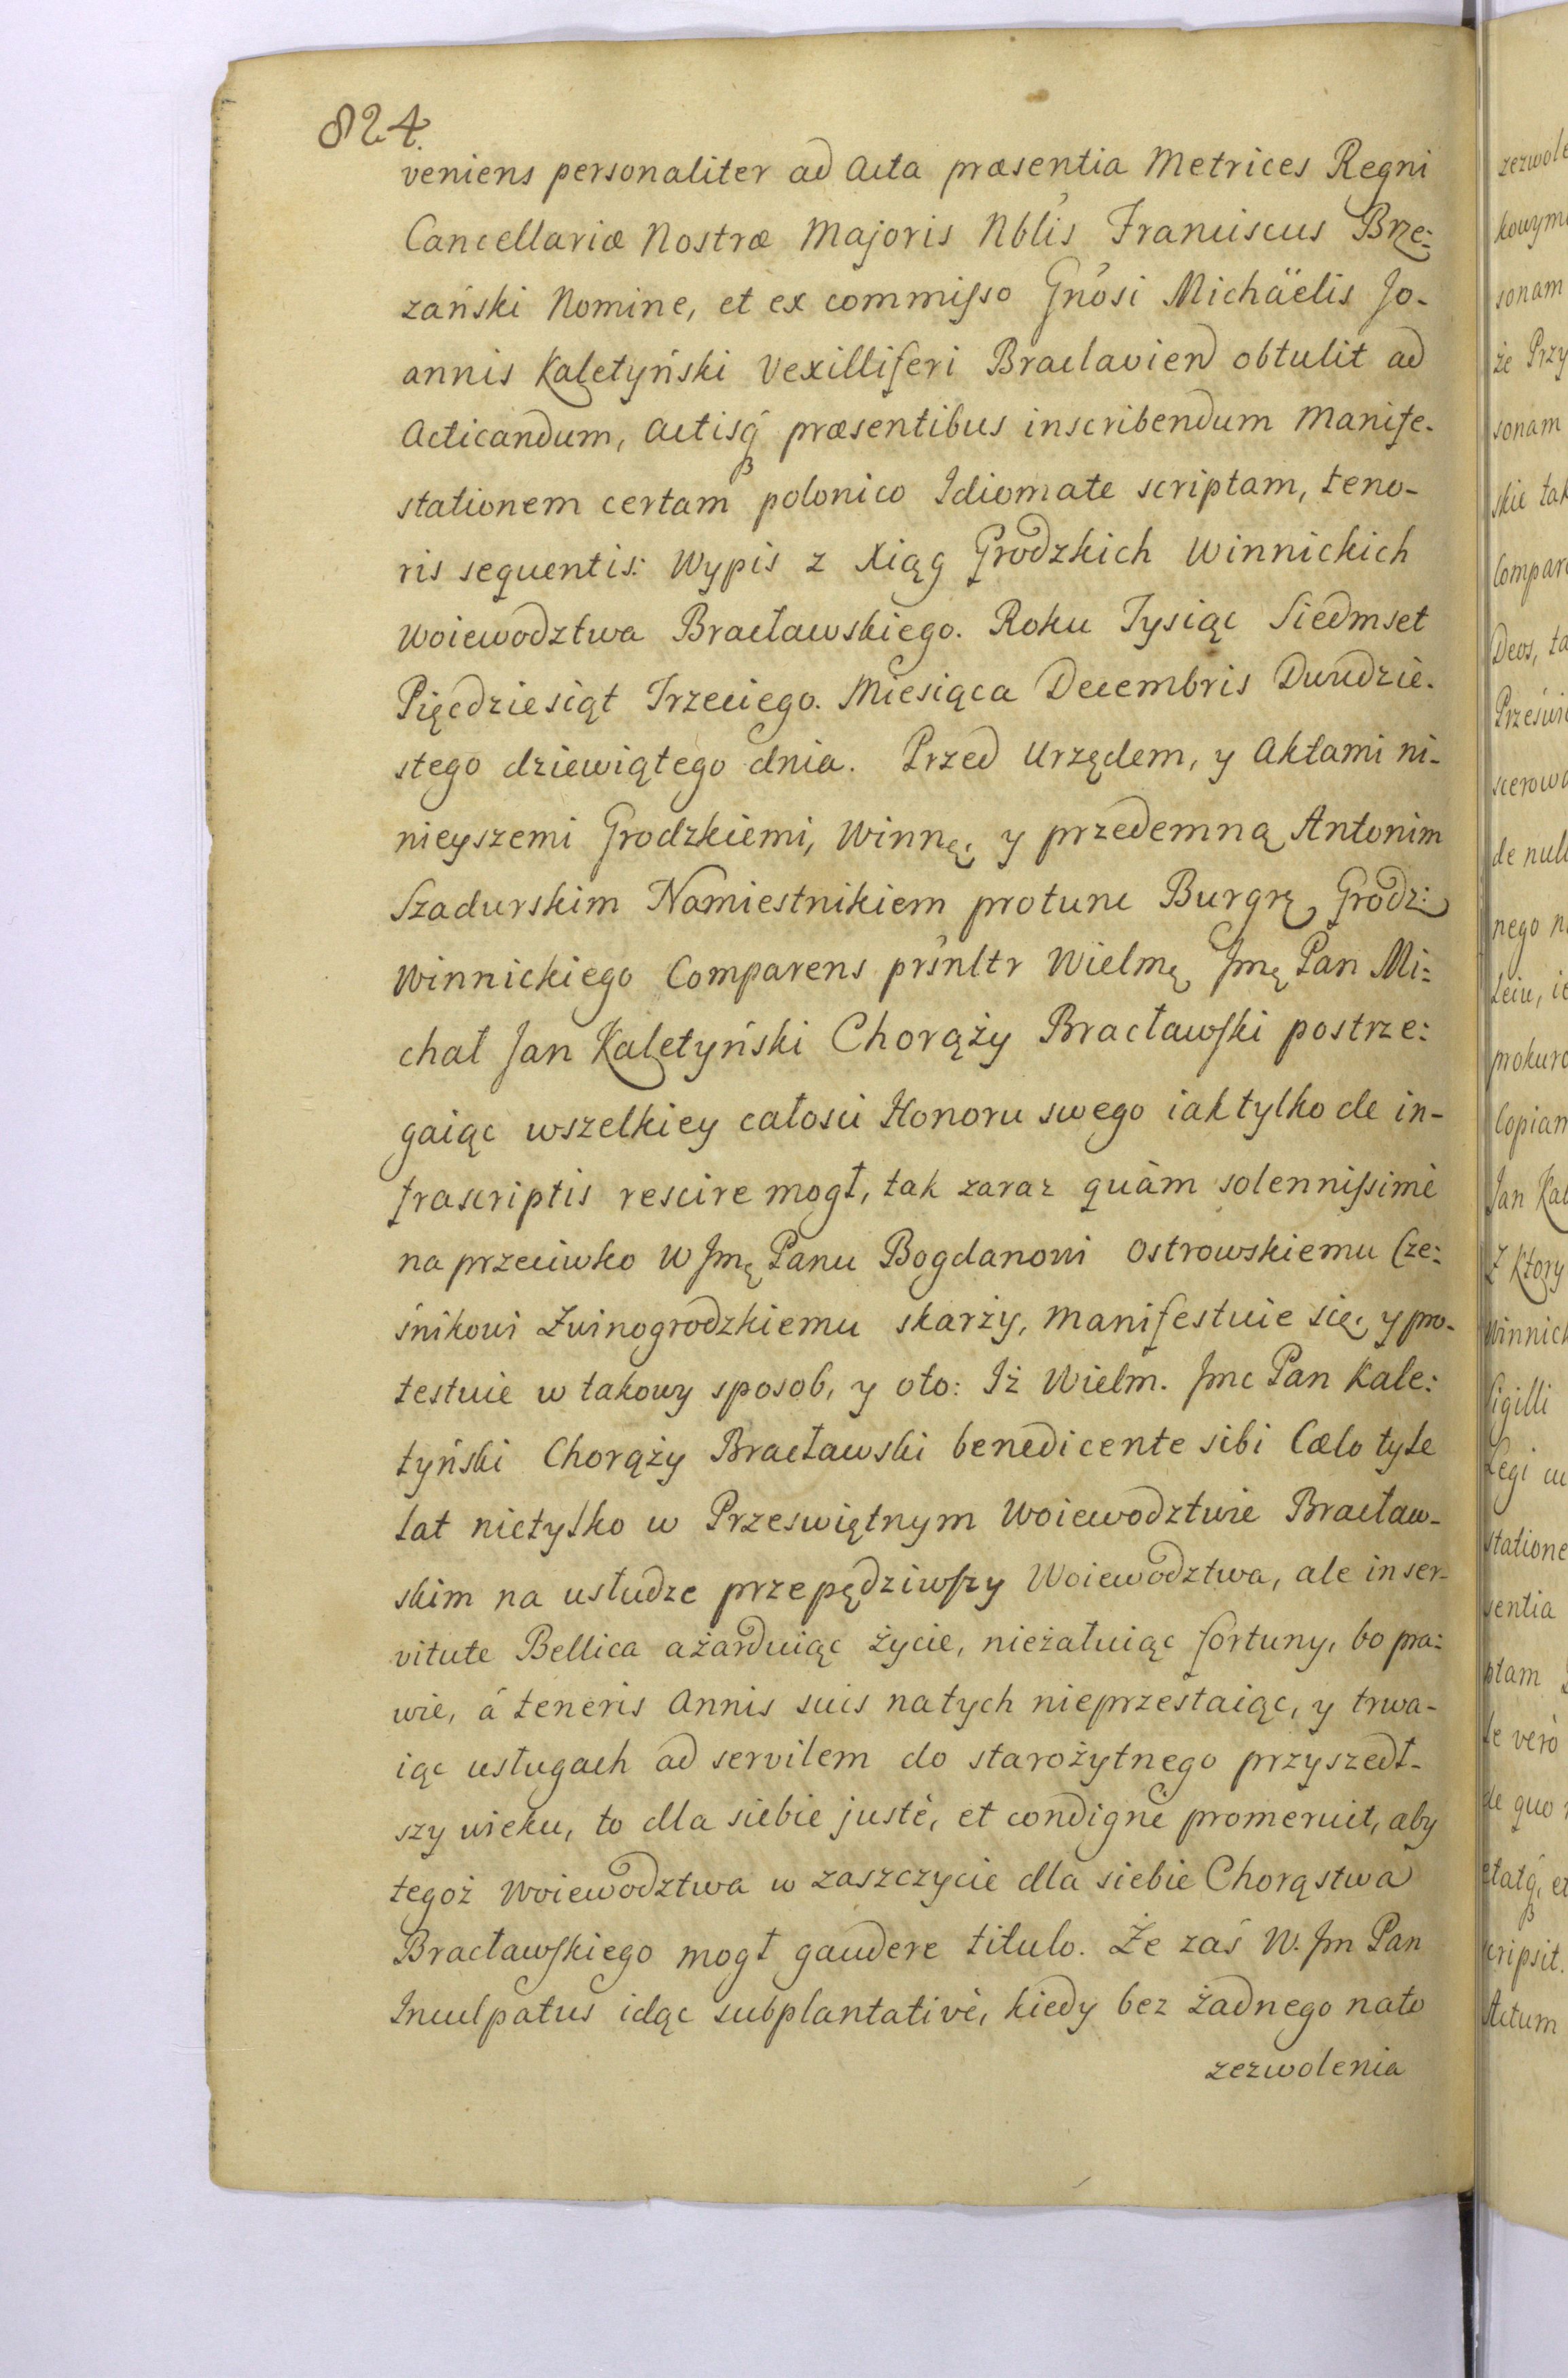 824.
veniens personaliter ad Acta præsentia Metrices Regni
Cancellariæ Nostræ Majoris Nblis Franciscus Brze:
zański Nomine, et ex commisso Gnosi Michäelis Jo-
annis Kaletyński Vexilliferi Braclavien obtulit ad
Acticandum, Actisq́ præsentibus inscribendum Manife-
stationem certam polonico Idiomate scriptam, teno-
ris sequentis: Wypis z Xiąg Grodzkich Winnickich
Woiewodztwa Bracławskiego. Roku Tysiąc Siedmset
Pięcdziesiąt Trzeciego. Miesiąca Decembris Dwudzie-
stego dziewiątego dnia. Przed Urzędem, y Aktami ni-
nieyszemi Grodzkiemi, Winnę, y przedemną Antonim
Szadurskim Namiestnikiem protunc Burgrę Grodz:
Winnickiego Comparens prsnltr Wielmę Jmę Pan Mi:
chał Jan Kaletyński Chorąży Bracławski postrze:
gaiąc wszelkiey całosci Honoru swego iak tylko de in-
frascriptis rescire mogł, tak zaraz quàm solennissimè
na przeciwko W Jmę Panu Bogdanowi Ostrowskiemu Cze:
śnikowi Zwinogrodzkiemu skarży, manifestuie się, y pro-
testuie w takowy sposob, y oto: Iż Wielm. Jmc Pan Kale:
tyński Chorąży Bracławski benedicente sibi Cælo tyle
lat nietylko w Przeswiętnym Woiewodztwie Bracław-
skim na usłudze przepędziwszy Woiewodztwa, ale in ser-
vitute Bellica ażarduiąc życie, nieżałuiąc fortuny, bo pra:
wie, á teneris Annis suis na tych nieprzestaiąc, y trwa-
iąc usługach ad servilem do starożytnego przyszedł-
szy wieku, to dla siebie justè, et condignè promeruit, aby
tegoż Woiewodztwa w zaszczycie dla siebie Chorąstwa
Bracławskiego mogł gaudere titulo. Że zaś W. Jm Pan
Inculpatus idąc subplantativè, kiedy bez żadnego nato
zezwolenia